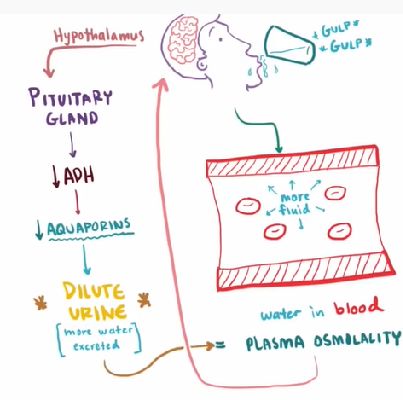 Hypothalamus
PITUITARY
GLAND
↓ADH
↓AQUAPORINS
* DILUTE *
URINE
[more water
excreted]
*GULP*
*GULP*
more
fluid
water in blood
= PLASMA OSMOLALITY